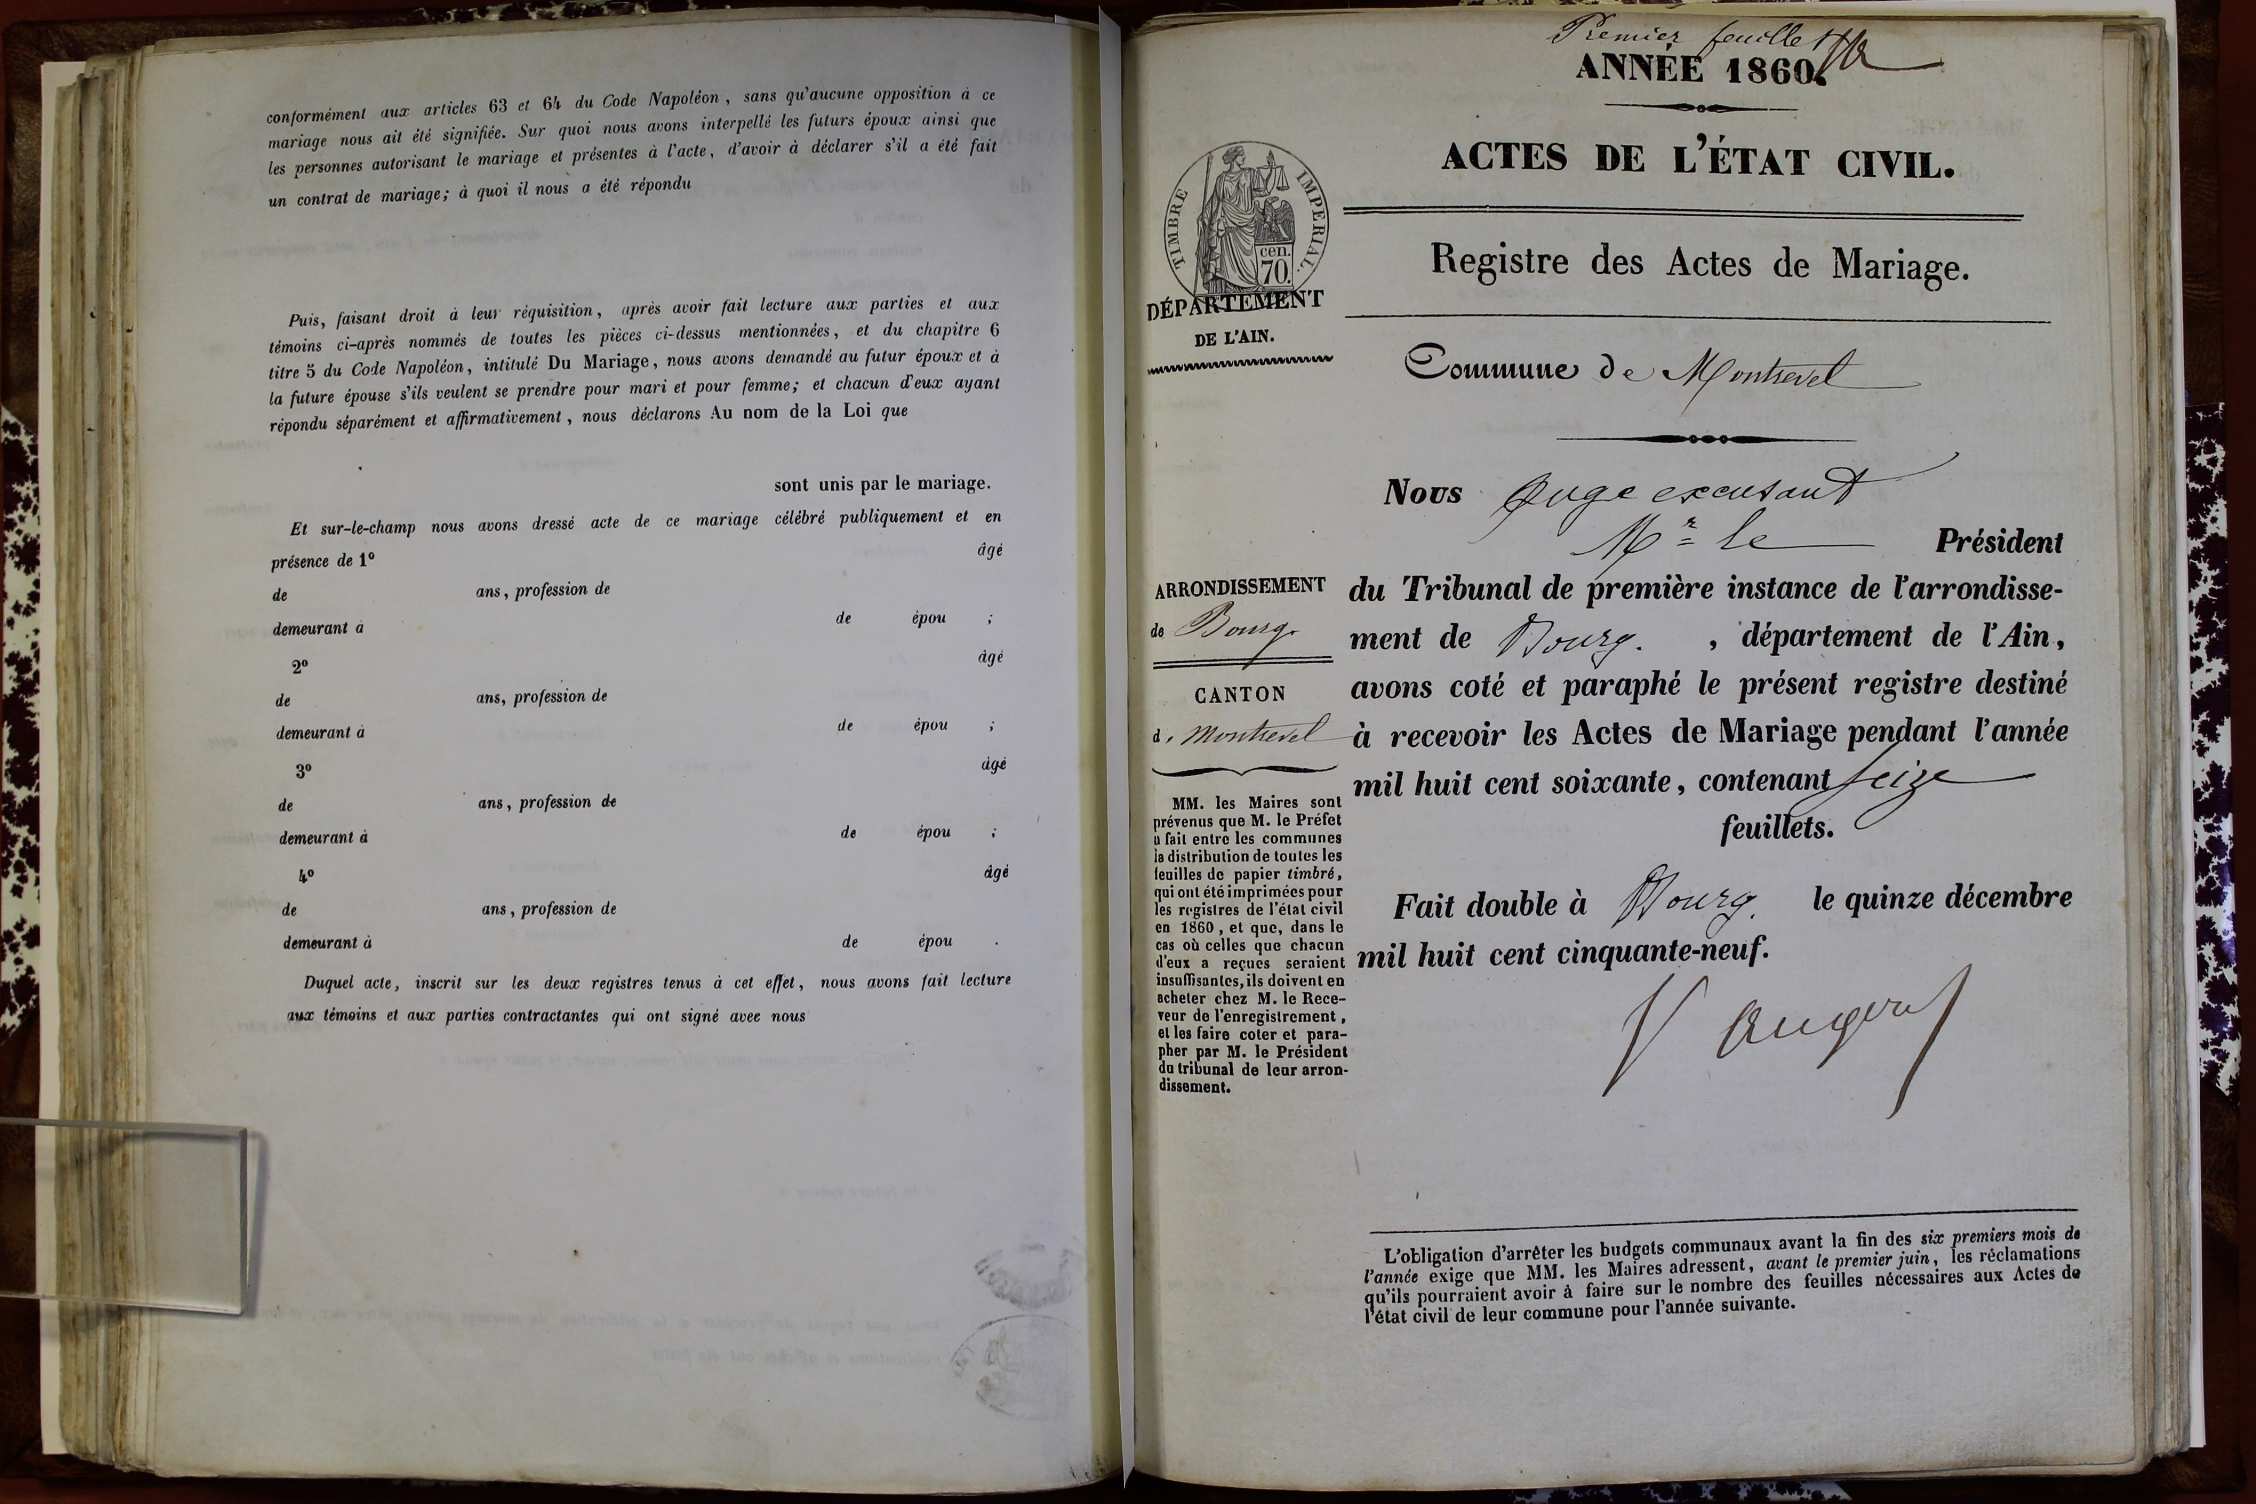 conformément aux articles 63 et 64 du Code Napoléon, sans qu'aucune opposition à ce
mariage nous ait été signifiée. Sur quoi nous avons interpellé les futurs époux ainsi que
les personnes autorisant le mariage et présentes à l'acte, d'avoir à déclarer s'il a été fait
un contrat de mariage; à quoi il nous a été répondu
Puis, faisant droit à leur réquisition, après avoir fait lecture aux parties et aux
témoins ci-après nommés de toutes les pièces ci-dessus mentionnées, et du chapitre 6
titre 5 du Code Napoléon, intitulé Du Mariage, nous avons demandé au futur époux et à
la future épouse s'ils veulent se prendre pour mari et pour femme; et chacun d'eux ayant
répondu séparément et affirmativement, nous déclarons Au nom de la Loi que
sont unis par le mariage.
Et sur-le-champ nous avons dressé acte de ce mariage célébré publiquement et en
présence de 1º âgé
de ans, profession de
demeurant à de épou ;
2º âgé
de ans, profession de
demeurant à de épou ;
3º âgé
de ans, profession de
demeurant à de épou ;
4º âgé
de ans, profession de
demeurant à de épou .
Duquel acte, inscrit sur les deux registres tenus à cet effet, nous avons fait lecture
aux témoins et aux parties contractantes qui ont signé avec nous
Premier feuillet
ANNÉE 1860.
ACTES DE L'ÉTAT CIVIL.
Registre des Actes de Mariage.
TIMBRE IMPERIAL.
cen.
70.
DÉPARTEMENT
DE L'AIN.
Commune de Montrevel
ARRONDISSEMENT
de Bourg.
CANTON
d. Montrevel
MM. les Maires sont
prévenus que M. le Préfet
a fait entre les communes
la distribution de toutes les
feuilles de papier timbré,
qui ont été imprimées pour
les registres de l'état civil
en 1860, et que, dans le
cas où celles que chacun
d'eux a reçues seraient
insuffisantes, ils doivent en
acheter chez M. le Rece-
veur de l'enregistrement,
et les faire coter et para-
pher par M. le Président
du tribunal de leur arron-
dissement.
Nous Juge excusant
Mr le Président
du Tribunal de première instance de l'arrondisse-
ment de Bourg. , département de l'Ain,
avons coté et paraphé le présent registre destiné
à recevoir les Actes de Mariage pendant l'année
mil huit cent soixante, contenant seize
feuillets.
Fait double à Bourg. le quinze décembre
mil huit cent cinquante-neuf.
L'obligation d'arrêter les budgets communaux avant la fin des six premiers mois de
l'année exige que MM. les Maires adressent, avant le premier juin, les réclamations
qu'ils pourraient avoir à faire sur le nombre des feuilles nécessaires aux Actes de
l'état civil de leur commune pour l'année suivante.